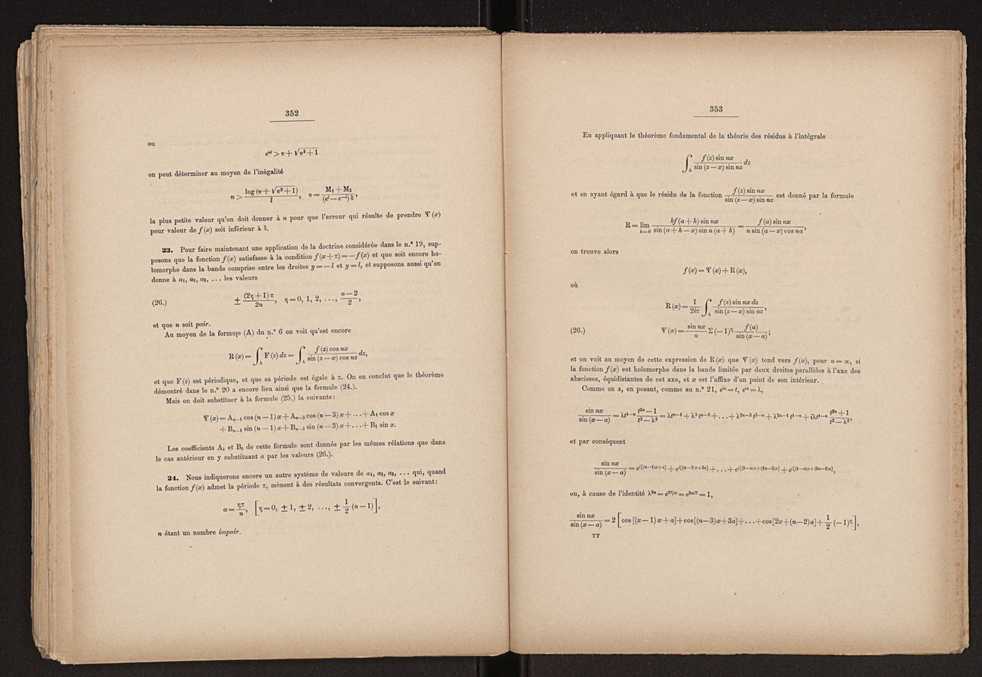 352
ou
e^{nl} > v + √(v² + 1)
on peut déterminer au moyen de l'inégalité
n > log (v + √(v² + 1)) / l, v = (M₁ + M₂) / ((e^l − e^{−l}) δ),
la plus petite valeur qu'on doit donner à n pour que l'erreur qui résulte de prendre Ψ (x)
pour valeur de f (x) soit inférieur à δ.
23. Pour faire maintenant une application de la doctrine considérée dans le n.º 19, sup-
posons que la fonction f (x) satisfasse à la condition f (x + π) = − f (x) et que soit encore ho-
lomorphe dans la bande comprise entre les droites y = − l et y = l, et supposons aussi qu'on
donne à a₁, a₂, a₃, ... les valeurs
(26.) ± (2η + 1) π / 2n, η = 0, 1, 2, ..., (n − 2) / 2,
et que n soit pair.
Au moyen de la formule (A) du n.º 6 on voit qu'est encore
R (x) = ∫ F (z) dz = ∫ f (z) cos nx / (sin (z − x) cos nz) dz,
et que F (z) est périodique, et que sa période est égale à π. On en conclut que le théorème
démontré dans le n.º 20 a encore lieu ainsi que la formule (24.).
Mais on doit substituer à la formule (25.) la suivante:
Ψ (x) = A_{n−1} cos (n − 1) x + A_{n−3} cos (n − 3) x + ... + A₁ cos x
+ B_{n−1} sin (n − 1) x + B_{n−3} sin (n − 3) x + ... + B₁ sin x.
Les coefficients A_i et B_i de cette formule sont donnés par les mêmes rélations que dans
le cas antérieur en y substituant a par les valeurs (26.).
24. Nous indiquerons encore un autre système de valeurs de a₁, a₂, a₃, ... qui, quand
la fonction f (x) admet la période π, mènent à des résultats convergents. C'est le suivant:
a = ηπ / n, [η = 0, ± 1, ± 2, ..., ± 1/2 (n − 1)],
n étant un nombre impair.
353
En appliquant le théorème fondamental de la théorie des résidus à l'intégrale
∫ f (z) sin nx / (sin (z − x) sin nz) dz
et en ayant égard à que le résidu de la fonction f (z) sin nx / (sin (z − x) sin nz) est donné par la formule
R = lim_{h=0} hf (a + h) sin nx / (sin (a + h − x) sin n (a + h)) = f (a) sin nx / (n sin (a − x) cos na),
on trouve alors
f (x) = Ψ (x) + R (x),
où
R (x) = 1/2iπ ∫ f (z) sin nx dz / (sin (z − x) sin nz),
(26.) Ψ (x) = sin nx / n Σ (−1)^η f (a) / sin (x − a);
et on voit au moyen de cette expression de R (x) que Ψ (x) tend vers f (x), pour n = ∞, si
la fonction f (x) est holomorphe dans la bande limitée par deux droites parallèles à l'axe des
abscisses, équidistantes de cet axe, et x est l'affixe d'un point de son intérieur.
Comme on a, en posant, comme au n.º 21, e^{ix} = t, e^{ia} = λ,
et par conséquent
ou, à cause de l'identité λ^{2n} = e^{2nia} = e^{2ηiπ} = 1,
TT